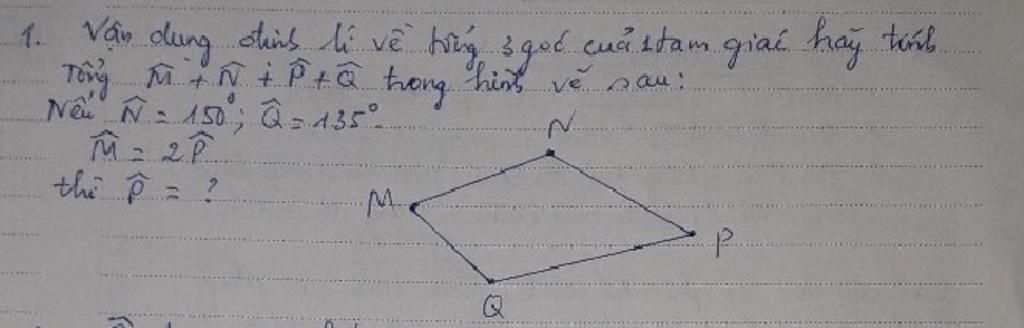 1. Vận dung định lí về tổng 3 góc của 1 tam giác hãy tính
Tổng M̂ + N̂ + P̂ + Q̂ trong hình vẽ sau:
Nếu N̂ = 150°; Q̂ = 135°
M̂ = 2P̂
thì P̂ = ?
N
M
P
Q